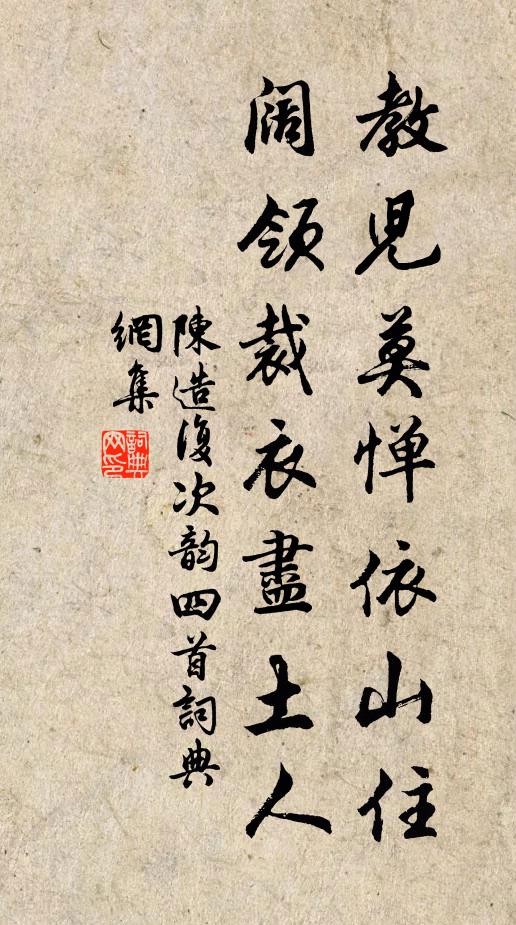 教兒莫惮依山住
阔領裁衣盡土人
陳造復次韵四首詞典
網集
詞典网印